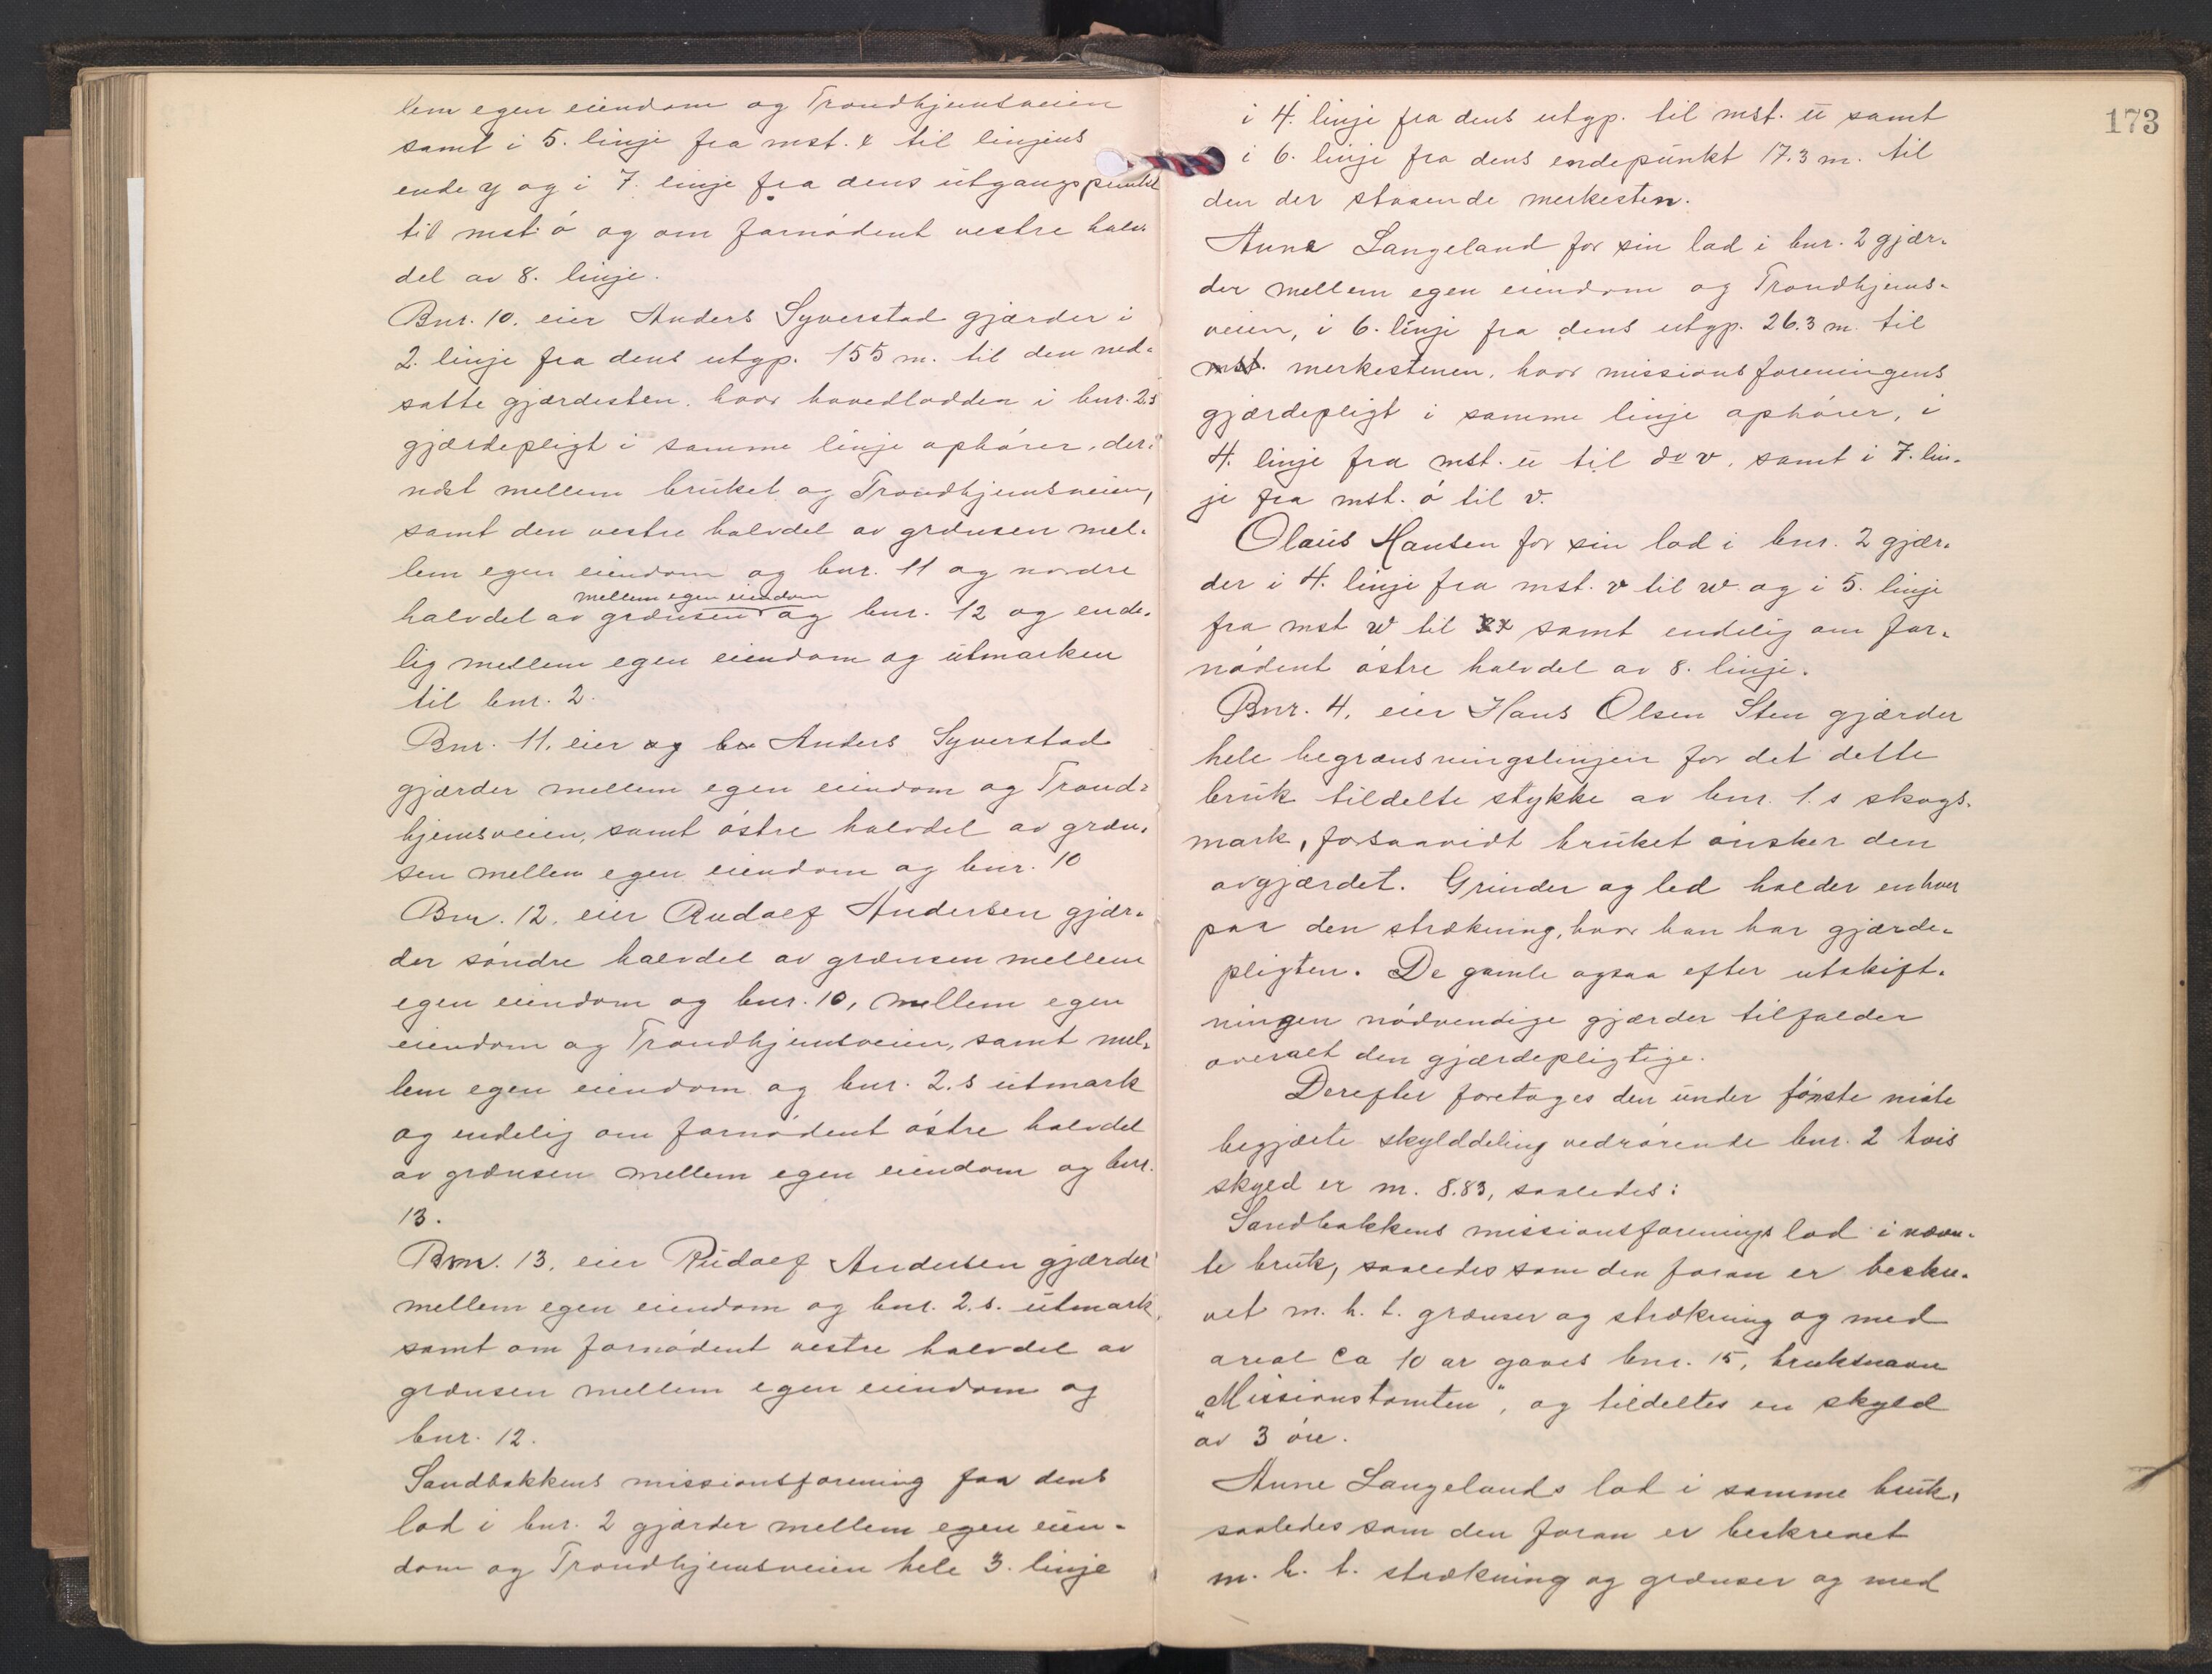 lem egen eiendom og Trondhjemsveien
samt i 5. linje fra mst. x til linjens
ende y og i 7. linje fra dens utgangspunkt
til mst. ó og om fornødent vestre halv-
del av 8. linje.
Bnr. 10. eier Anders Syverstad gjærder i
2. linje fra dens utgp. 155 m. til den ned-
satte gjærdesten, hvor hovedlodden i bnr. 2.s
gjærdepligt i samme linje ophører, der-
næst mellem bruket og Trondhjemsveien,
samt den vestre halvdel av grænsen mel-
lem egen eiendom og bnr. 11 og nordre
mellem egen eiendom
halvdel av grænsen og bnr. 12 og ende-
lig mellem egen eiendom og utmarken
til bnr. 2.
Bnr. 11. eier og br Anders Syverstad
gjærder mellem egen eiendom og Trond-
hjemsveien, samt østre halvdel av græn-
sen mellem egen eiendom og bnr. 10
Bnr. 12. eier Rudolf Andersen gjær-
der søndre halvdel av grænsen mellem
egen eiendom og bnr. 10, mellem egen
eiendom og Trondhjemsveien, samt mel-
lem egen eiendom og bnr. 2.s utmark
og endelig om fornødent østre halvdel
av grænsen mellem egen eiendom og bnr.
13.
Bnr. 13. eier Rudolf Andersen gjærder
mellem egen eiendom og bnr. 2.s. utmark,
samt om fornødent vestre halvdel av
grænsen mellem egen eiendom og
bnr. 12.
Sandbakkens missionsforening faa dens
lod i bnr. 2 gjærder mellem egen eien-
dom og Trondhjemsveien hele 3. linje
173
i 4. linje fra dens utgp. til mst. u samt
i 6. linje fra dens endepunkt 17.3 m. til
den der staaende merkesten.
Anne Langeland for sin lod i bnr. 2 gjær-
der mellem egen eiendom og Trondhjems-
veien, i 6. linje fra dens utgp. 26.3 m. til
mst. merkestenen, hvor missionsforeningens
gjærdepligt i samme linje ophører, i
4. linje fra mst. u til do v, samt i 7. lin-
je fra mst. ó til v.
Olaus Hansen for sin lod i bnr. 2 gjær-
der i 4. linje fra mst. v til w og i 5. linje
fra mst w til x samt endelig om for-
nødent østre halvdel av 8. linje.
Bnr. 4, eier Hans Olsen Sten gjærder
hele begrænsningslinjen for det dette
bruk tildelte stykke av bnr. 1.s skogs-
mark, forsaavidt bruket ønsker den
avgjærdet. Grinder og led holder enhver
paa den strækning, hvor han har gjærde-
pligten. De gamle ogsaa efter utskift-
ningen nødvendige gjærder tilfalder
overalt den gjærdepligtige.
Derefter foretoges den under første møte
begjærte skylddeling vedrørende bnr. 2 hvis
skyld er m. 8.83, saaledes:
Sandbakkens missionsforenings lod i nævn-
te bruk, saaledes som den foran er beskre-
vet m. h. t. grænser og strækning og med
areal ca 10 ar gaves bnr. 15, bruksnavn
"Missionstomten", og tildeltes en skyld
av 3 øre.
Anne Langelands lod i samme bruk,
saaledes som den foran er beskrevet
m. h. t. strækning og grænser og med